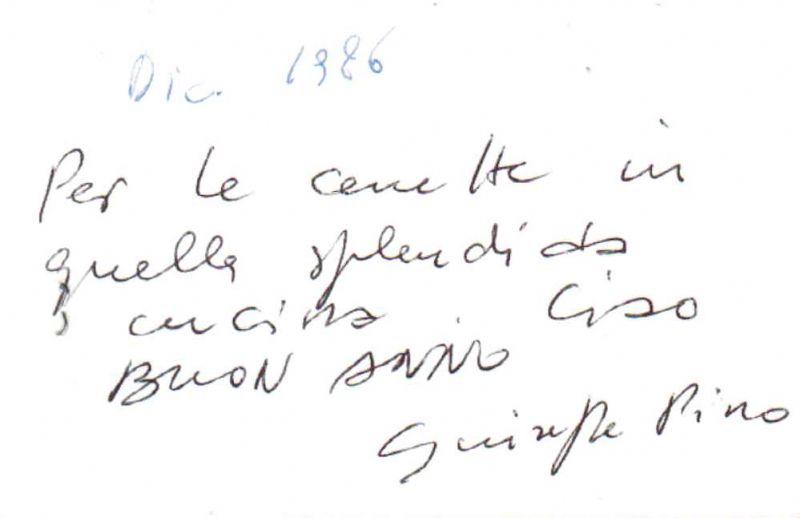 Dic. 1986
Per le cenette in
quella splendida
cucina. Ciao
BUON ANNO
Giuseppe Pino